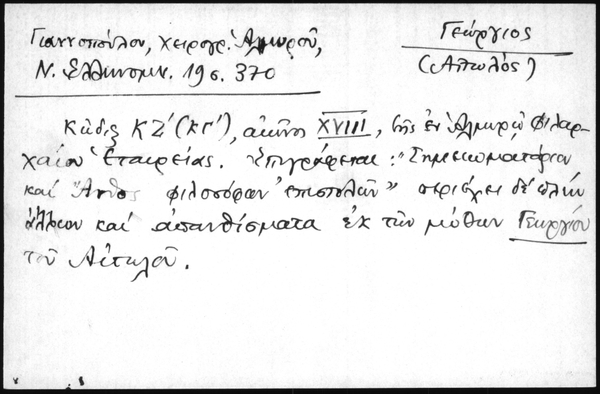 Γιαννοπούλου, Χειρόγρ. Ἁλμυροῦ,
Ν. Ἑλληνομν. 19 σ. 370
Γεώργιος
(Αἰτωλός)
Κῶδιξ ΚΖ' (ΚΓ'), αἰῶνος XVIII, τῆς ἐν Ἁλμυρῷ Φιλαρ-
χαίου Ἑταιρείας. Ἐπιγράφεται: "Σημειωματάριον
καὶ Ἄνθος φιλοσόφων ἐπιστολῶν" περιέχει δὲ πλὴν
ἄλλων καὶ ἀπανθίσματα ἐκ τῶν μύθων Γεωργίου
τοῦ Αἰτωλοῦ.